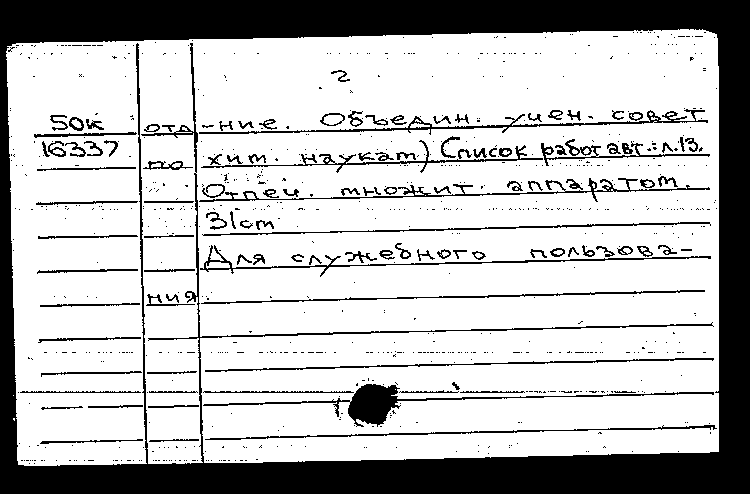 2
50к отд-ние. Объедин. учен. совет
16337 по хим. наукам) Список работ авт.: л. 13.
Отпеч. множит. аппаратом.
31cm
Для служебного пользова-
ния.